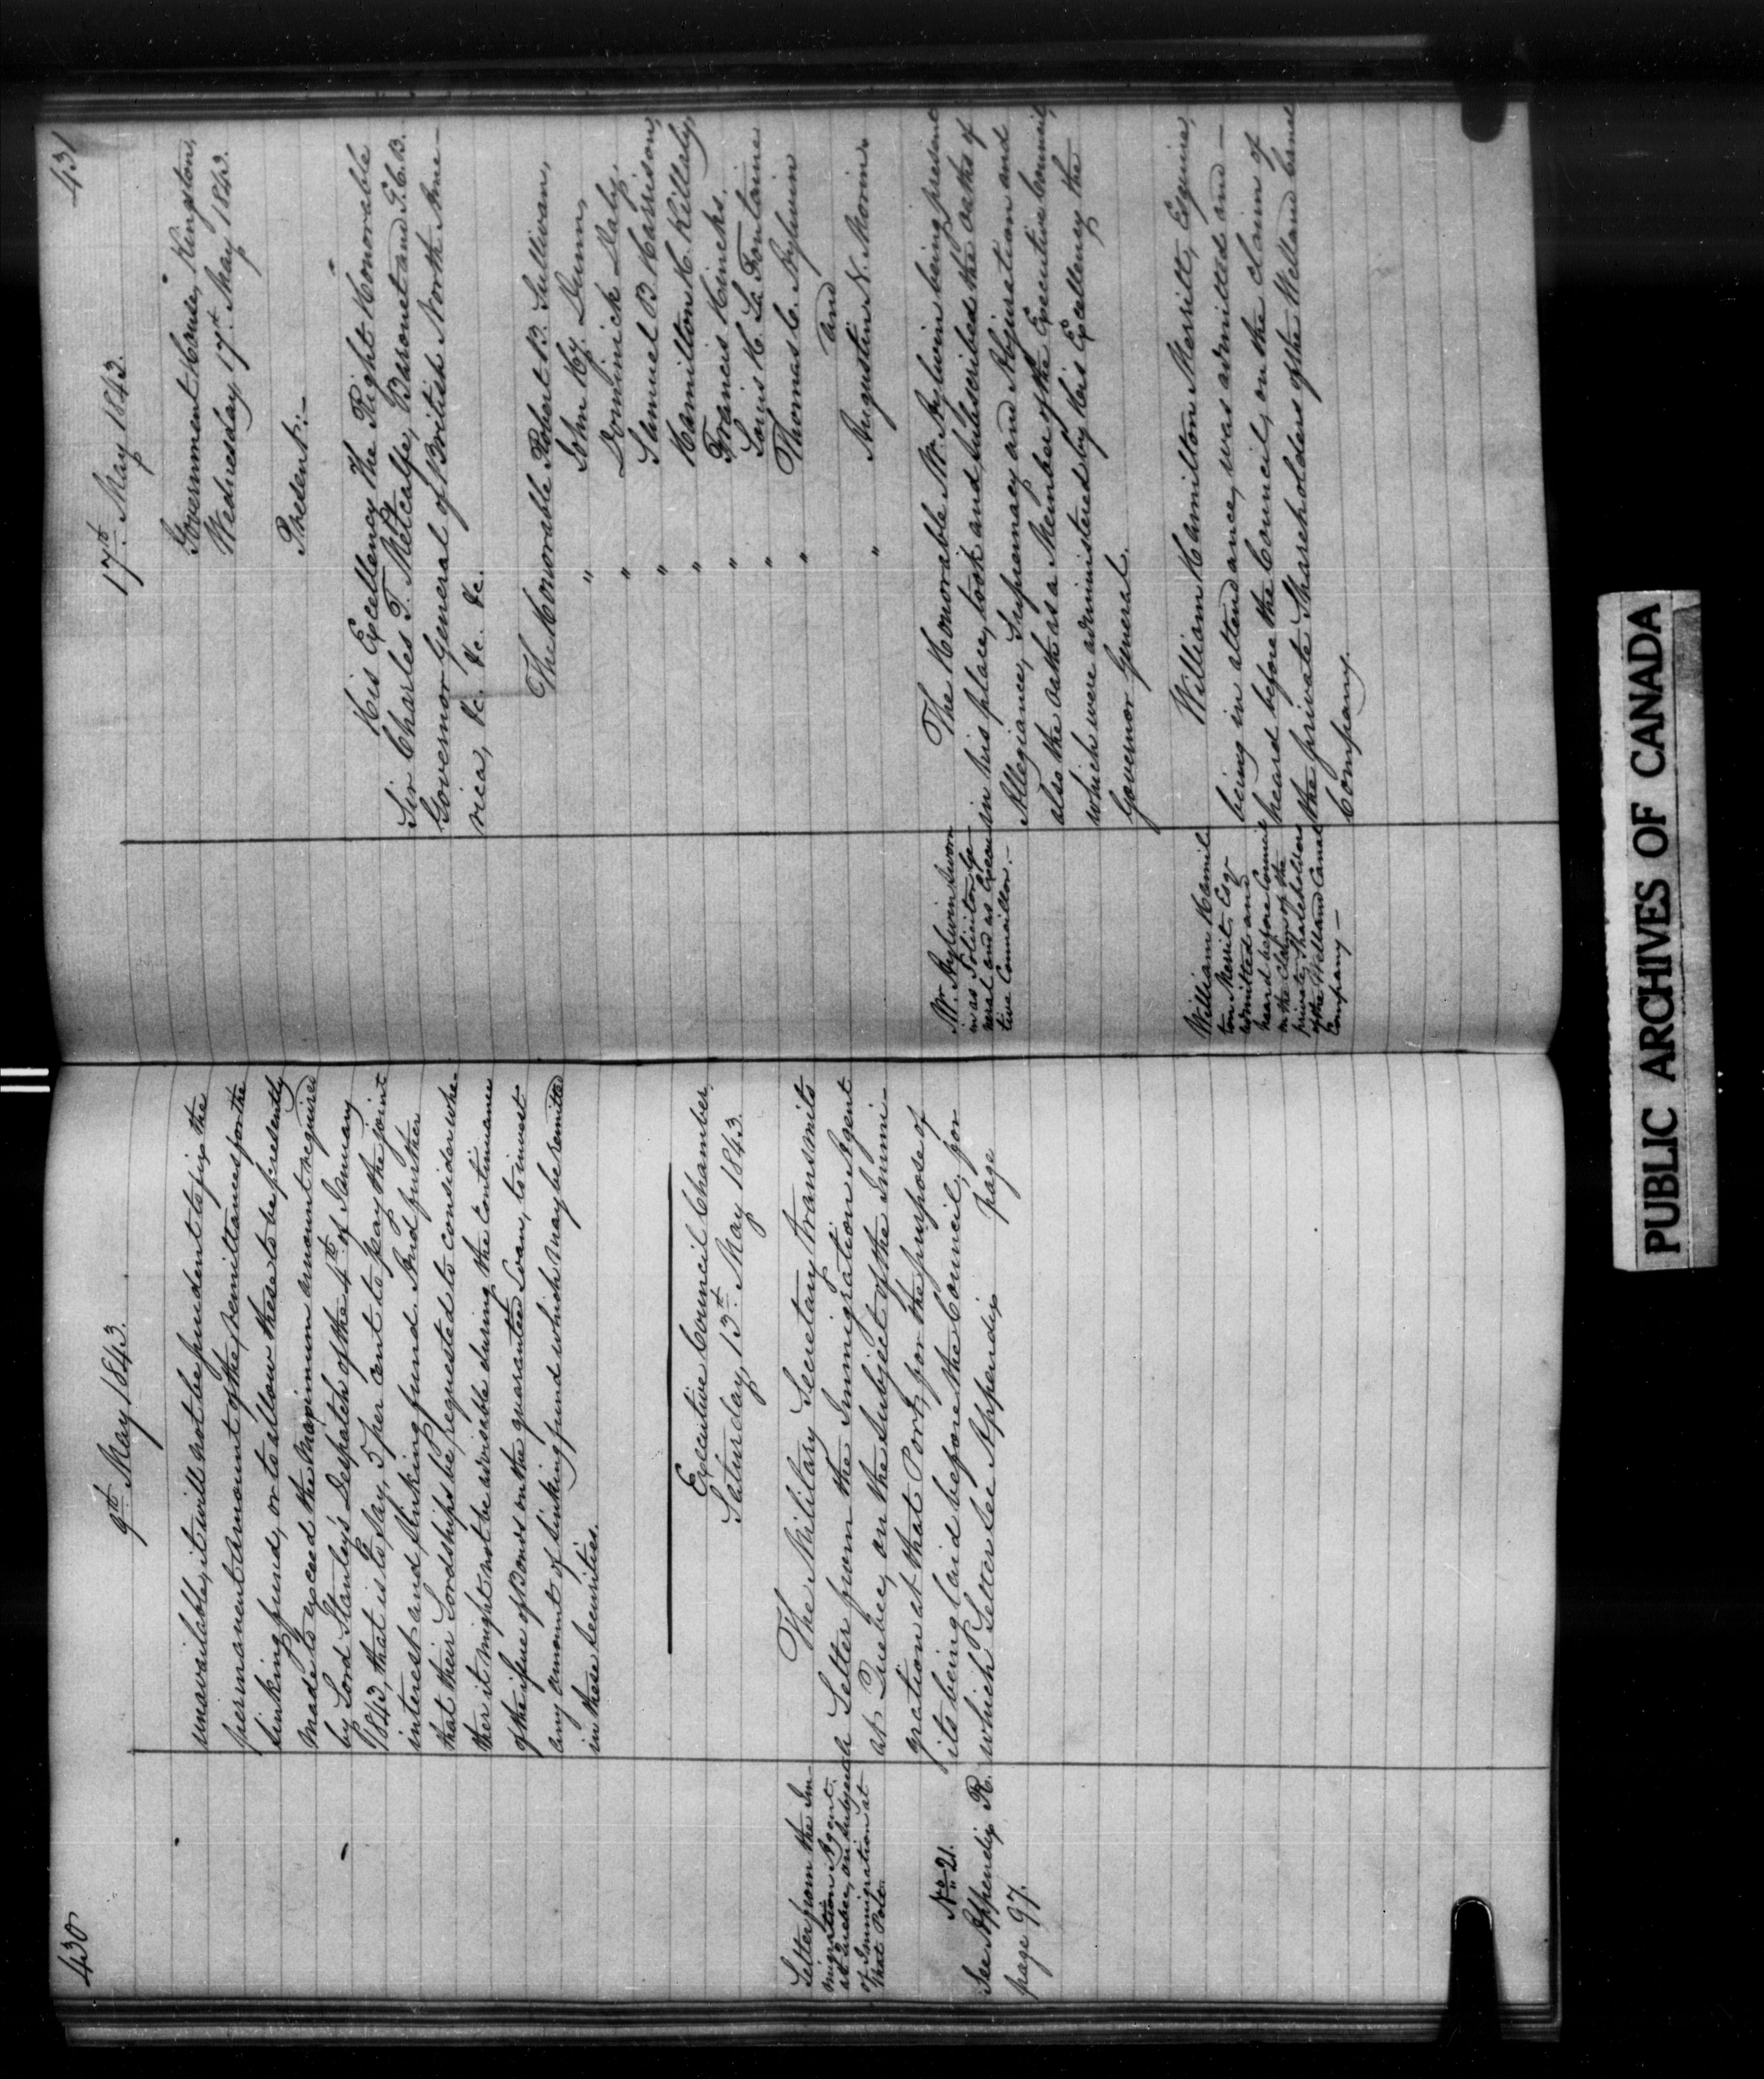 430
9th May 1843.
unavailable, it will not be prudent to fix the
permanent amount of the remittances for the
sinking fund, or to allow these to be presently
made to exceed the Maximum amount required
by Lord Stanley's Despatch of the 4th of January
1843, that is to say, 5 per cent to pay the joint
interest and sinking fund. And further
that their Lordships be requested to consider whe-
ther it might not be advisable during the Continuance
of the issue of Bonds on the guaranteed Loan, to invest
any amount of sinking fund which may be remitted
in these securities.
Executive Council Chamber,
Saturday, 13th May 1843.
Letter from the Im-
migration Agent
at Quebec, on subject
of Immigration at
that Port.
The Military Secretary transmits
a Letter from the Immigration Agent
at Quebec, on the subject of the Immi-
gration at that Port, for the purpose of
its being laid before the Council, for
which Letter see Appendix page
No 21.
See Appendix R.
page 97.
431
17th May 1843.
Government House, Kingston,
Wednesday 17th May 1843.
Present:—
His Excellency The Right Honorable
Sir Charles T. Metcalfe, Baronet and G.C.B.
Governor General of British North Ame-
rica, &c. &c. &c.
The Honorable Robert B. Sullivan,
" John Hy. Dunn,
" Dominick Daly,
" Samuel B Harrison,
" Hamilton H. Killaly,
" Francis Hincks.
" Louis H. La Fontaine
" Thomas C. Aylwin
and
" Augustin N. Morin.
Mr. Aylwin sworn
in as Solicitor Ge-
neral and as Execu-
tive Councillor.—
The Honorable Mr. Aylwin being present
in his place, took and subscribed the oaths of
Allegiance, Supremacy and Abjuration and
also the oath as a Member of the Executive Council,
which were administered by His Excellency the
Governor General.
William Hamil-
ton Merritt, Esqr
admitted and
heard before Council
on the claim of the
private Shareholders
of the Welland Canal
Company—
William Hamilton Merritt, Esquire,
being in attendance, was admitted and—
heard before the Council, on the claim of
the private Shareholders of the Welland Canal
Company.
PUBLIC ARCHIVES OF CANADA